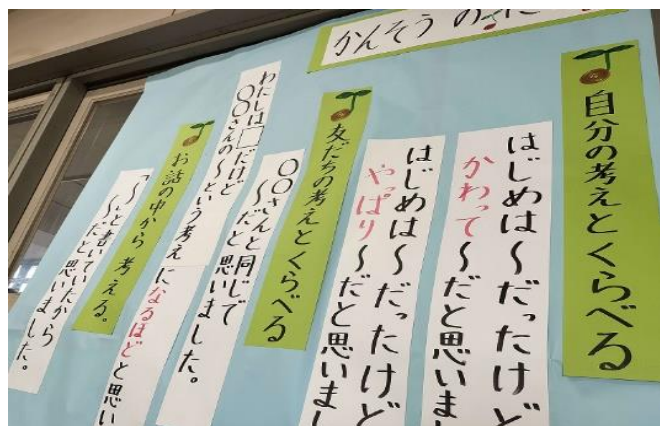 かんそうの
自分の考えとくらべる
はじめは〜だったけど
かわって〜だと思いまし
はじめは〜だったけど
やっぱり〜だと思いまし
友だちの考えとくらべる
〇〇さんと同じで
〜だと思いました。
わたしは□だけど
〇〇さんの〜という考えになるほどと思い
お話の中から考える。
「〜」と書いていたから
〜だと思いました。